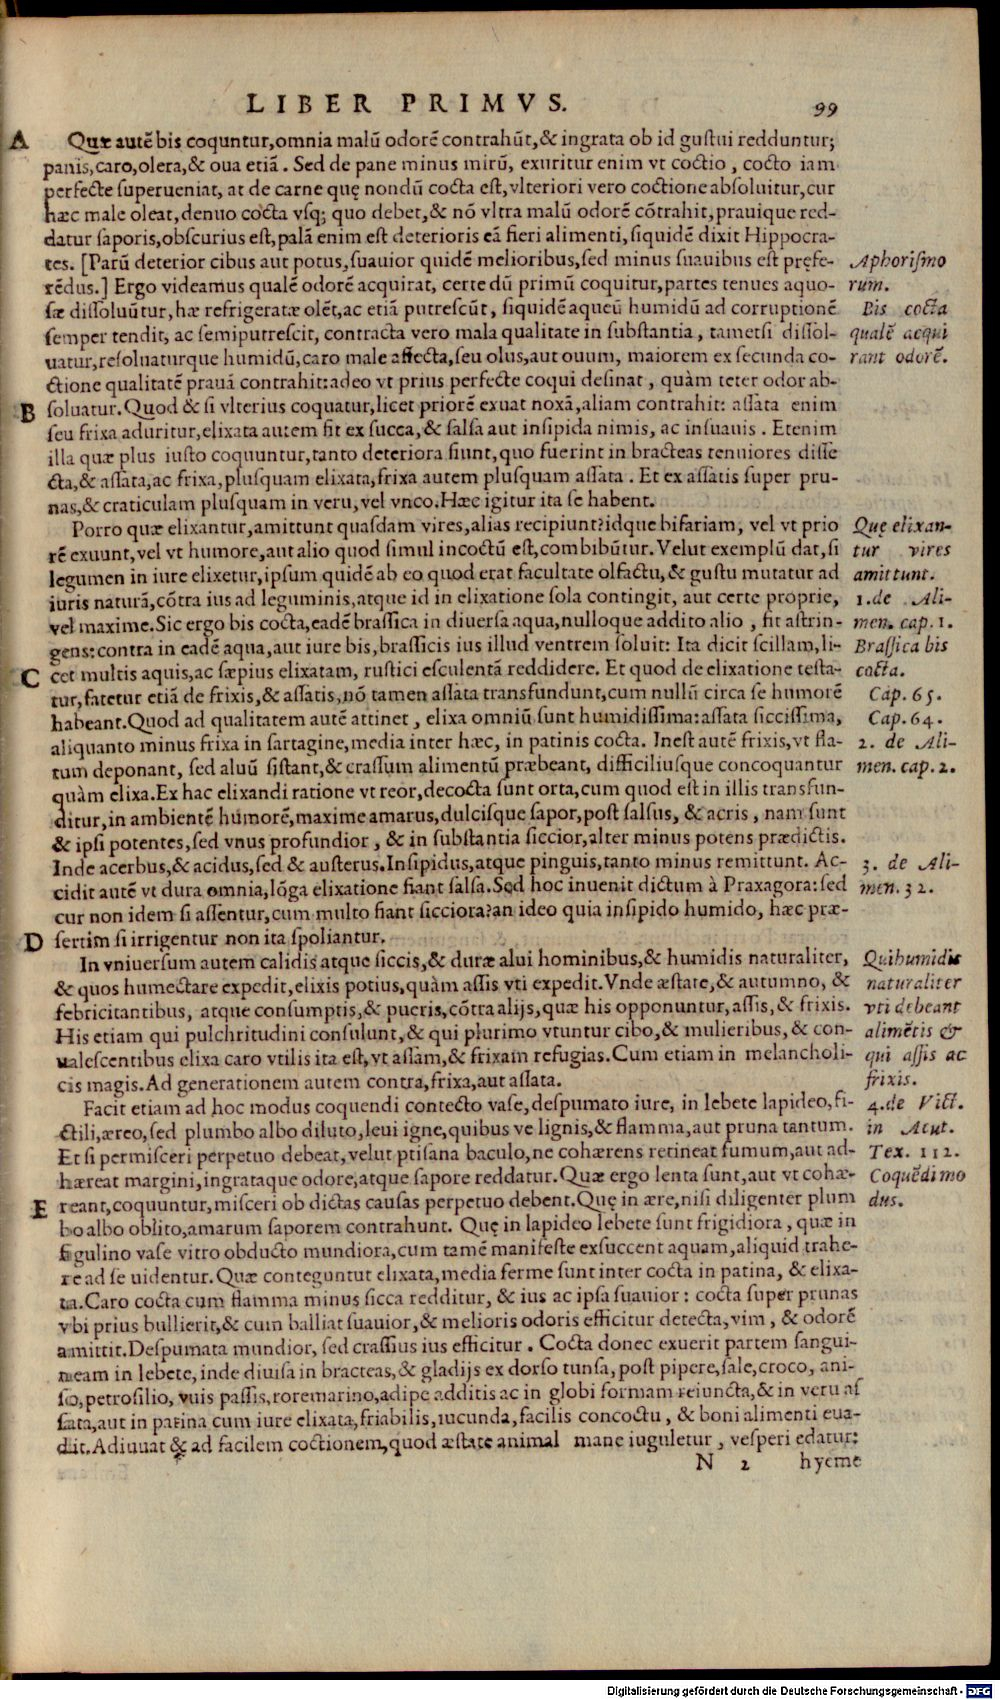 LIBER PRIMVS. 99
A Quæ autẽ bis coquntur, omnia malũ odorẽ contrahũt, & ingrata ob id gustui redduntur;
panis, caro, olera, & oua etiã. Sed de pane minus mirũ, exuritur enim vt coctio, cocto iam
perfecte superueniat, at de carne quę nondũ cocta est, vlteriori vero coctione absoluitur, cur
hæc male oleat, denuo cocta vsq; quo debet, & nõ vltra malũ odorẽ cõtrahit, prauique red-
datur saporis, obscurius est, palã enim est deterioris eã fieri alimenti, siquidẽ dixit Hippocra-
tes. [Parũ deterior cibus aut potus, suauior quidẽ melioribus, sed minus suauibus est pręfe- Aphorismo
rẽdus.] Ergo videamus qualẽ odorẽ acquirat, certe dũ primũ coquitur, partes tenues aquo- rum.
sæ dissoluũtur, hæ refrigeratæ olẽt, ac etiã putrescũt, siquidẽ aqueũ humidũ ad corruptionẽ Bis cocta
semper tendit, ac semiputrescit, contracta vero mala qualitate in substantia, tametsi dissol- qualẽ acqui
uatur, resoluaturque humidũ, caro male affecta, seu olus, aut ouum, maiorem ex secunda co- rant odorẽ.
ctione qualitatẽ prauã contrahit: adeo vt prius perfecte coqui desinat, quàm teter odor ab-
B soluatur. Quod & si vlterius coquatur, licet priorẽ exuat noxã, aliam contrahit: assata enim
seu frixa aduritur, elixata autem fit ex succa, & salsa aut insipida nimis, ac insuauis. Etenim
illa quæ plus iusto coquuntur, tanto deteriora fiunt, quo fuerint in bracteas tenuiores disse
cta, & assata, ac frixa, plusquam elixata, frixa autem plusquam assata. Et ex assatis super pru-
nas, & craticulam plusquam in veru, vel vnco. Hæc igitur ita se habent.
Porro quæ elixantur, amittunt quasdam vires, alias recipiunt? idque bifariam, vel vt prio Quę elixan-
rẽ exuunt, vel vt humore, aut alio quod simul incoctũ est, combibũtur. Velut exemplũ dat, si tur vires
legumen in iure elixetur, ipsum quidẽ ab eo quod erat facultate olfactu, & gustu mutatur ad amittunt.
iuris naturã, cõtra ius ad leguminis, atque id in elixatione sola contingit, aut certe proprie, 1. de Ali-
vel maxime. Sic ergo bis cocta, eadẽ brassica in diuersa aqua, nulloque addito alio, fit astrin- men. cap. 1.
gens: contra in eadẽ aqua, aut iure bis, brassicis ius illud ventrem soluit: Ita dicit scillam, li- Brassica bis
C cet multis aquis, ac sæpius elixatam, rustici esculentã reddidere. Et quod de elixatione testa- cocta.
tur, fatetur etiã de frixis, & assatis, nõ tamen assata transfundunt, cum nullũ circa se humorẽ Cap. 65.
habeant. Quod ad qualitatem autẽ attinet, elixa omniũ sunt humidissima: assata siccissima, Cap. 64.
aliquanto minus frixa in sartagine, media inter hæc, in patinis cocta. Inest autẽ frixis, vt fla- 2. de Ali-
tum deponant, sed aluũ sistant, & crassum alimentũ præbeant, difficiliusque concoquantur men. cap. 2.
quàm elixa. Ex hac elixandi ratione vt reor, decocta sunt orta, cum quod est in illis transfun-
ditur, in ambientẽ humorẽ, maxime amarus, dulcisque sapor, post salsus, & acris, nam sunt
& ipsi potentes, sed vnus profundior, & in substantia siccior, alter minus potens prædictis.
Inde acerbus, & acidus, sed & austerus. Insipidus, atque pinguis, tanto minus remittunt. Ac- 3. de Ali-
cidit autẽ vt dura omnia, lõga elixatione fiant salsa. Sed hoc inuenit dictum à Praxagora: sed men. 32.
cur non idem si assentur, cum multo fiant sicciora? an ideo quia insipido humido, hæc præ-
D sertim si irrigentur non ita spoliantur.
In vniuersum autem calidis atque siccis, & duræ alui hominibus, & humidis naturaliter, Qui humidis
& quos humectare expedit, elixis potius, quàm assis vti expedit. Vnde æstate, & autumno, & naturaliter
febricitantibus, atque consumptis, & pueris, cõtra alijs, quæ his opponuntur, assis, & frixis. vti debeant
His etiam qui pulchritudini consulunt, & qui plurimo vtuntur cibo, & mulieribus, & con- alimẽtis &
ualescentibus elixa caro vtilis ita est, vt assam, & frixam refugias. Cum etiam in melancholi- qui assis ac
cis magis. Ad generationem autem contra, frixa, aut assata. frixis.
Facit etiam ad hoc modus coquendi contecto vase, despumato iure, in lebete lapideo, fi- 4. de Vict.
ctili, æreo, sed plumbo albo diluto, leui igne, quibus ve lignis, & flamma, aut pruna tantum. in Acut.
Et si permisceri perpetuo debeat, velut ptisana baculo, ne cohærens retineat fumum, aut ad- Tex. 112.
hæreat margini, ingrataque odore, atque sapore reddatur. Quæ ergo lenta sunt, aut vt cohæ- Coquẽdi mo
E reant, coquuntur, misceri ob dictas causas perpetuo debent. Quę in ære, nisi diligenter plum dus.
bo albo oblito, amarum saporem contrahunt. Quę in lapideo lebete sunt frigidiora, quæ in
figulino vase vitro obducto mundiora, cum tamẽ manifeste exsuccent aquam, aliquid trahe-
re ad se uidentur. Quæ conteguntut elixata, media ferme sunt inter cocta in patina, & elixa-
ta. Caro cocta cum flamma minus sicca redditur, & ius ac ipsa suauior: cocta super prunas
vbi prius bullierit, & cum balliat suauior, & melioris odoris efficitur detecta, vim, & odorẽ
amittit. Despumata mundior, sed crassius ius efficitur. Cocta donec exuerit partem sangui-
neam in lebete, inde diuisa in bracteas, & gladijs ex dorso tunsa, post pipere, sale, croco, ani-
so, petrosilio, vuis passis, roremarino, adipe additis ac in globi formam reiuncta, & in veru as
sata, aut in patina cum iure elixata, friabilis, iucunda, facilis concoctu, & boni alimenti eua-
dit. Adiuuat & ad facilem coctionem, quod æstate animal mane iuguletur, vesperi edatur:
N 2 hyeme
Digitalisierung gefördert durch die Deutsche Forschungsgemeinschaft - DFG